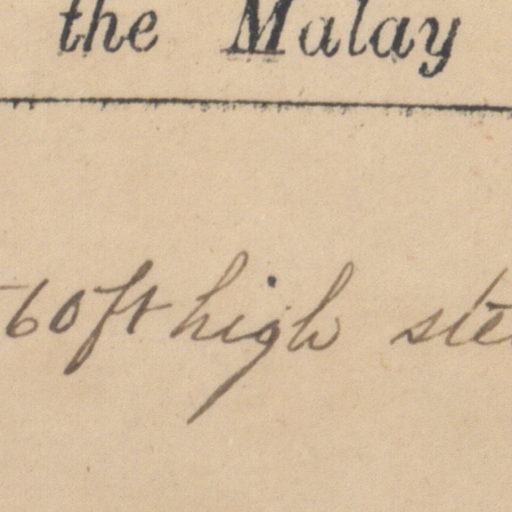 the Malay
60 ft high